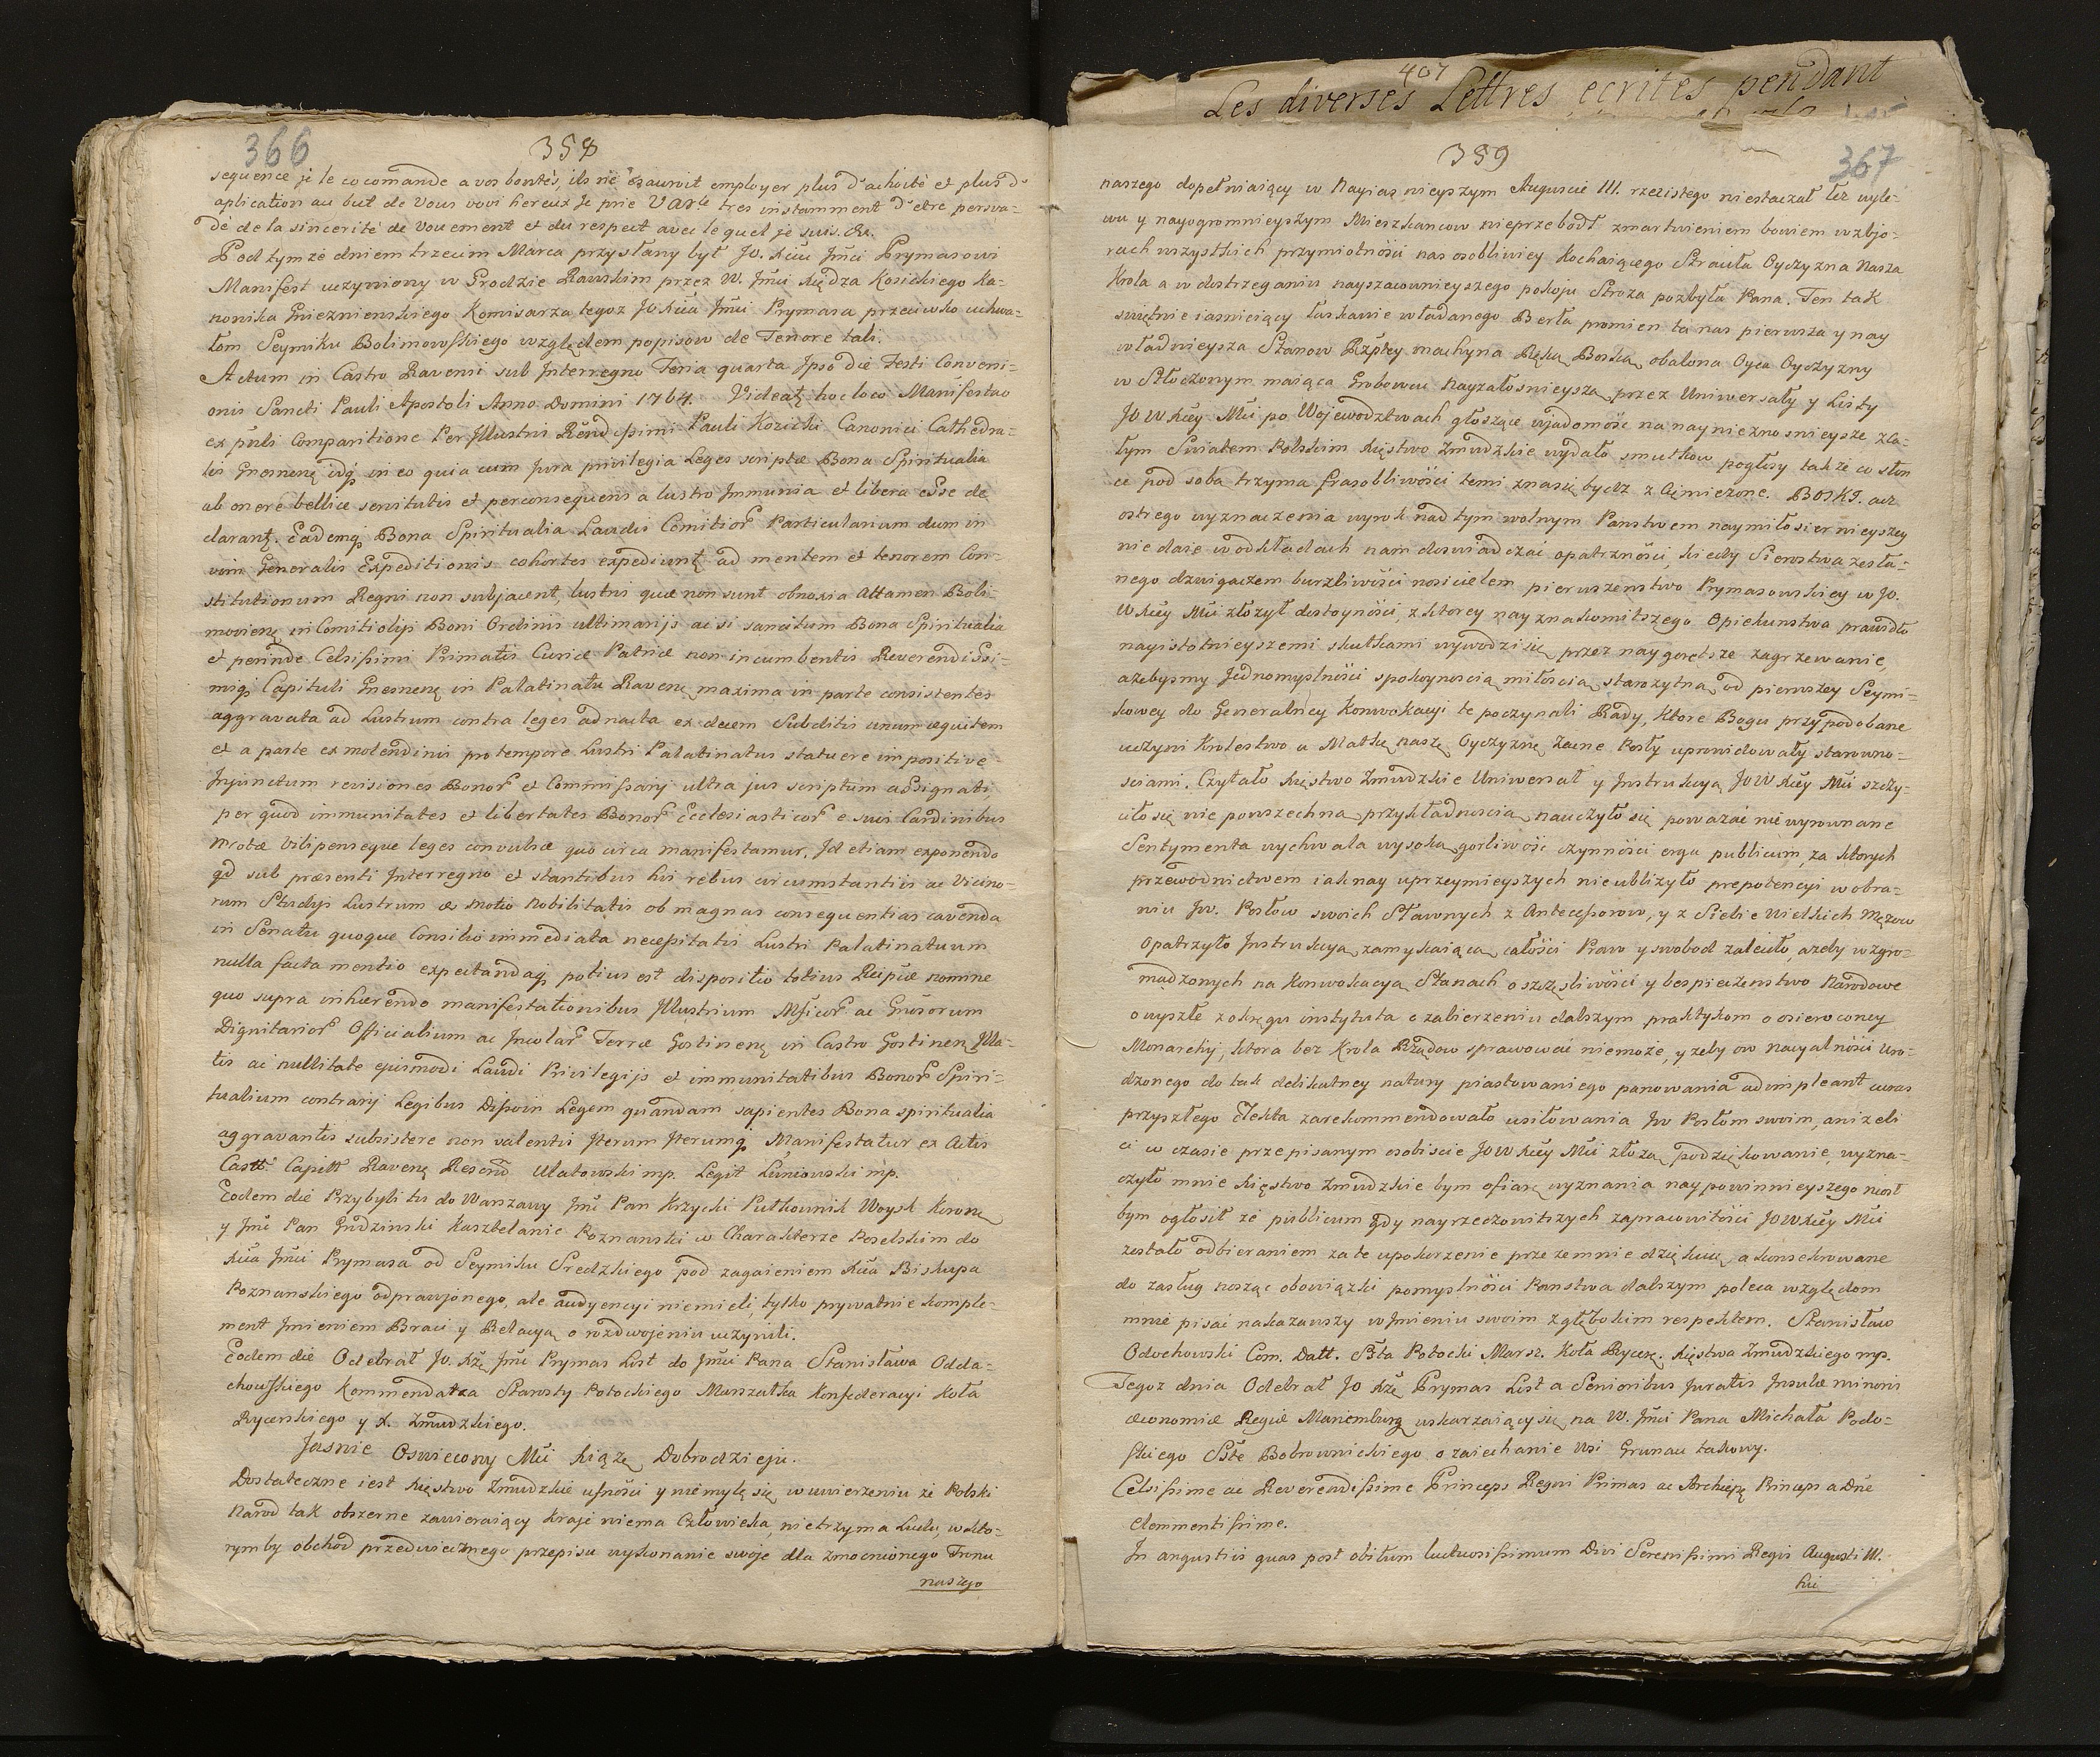 366
358
sequence je le cocomande a vos bontés, ils ne sauroit employer plus d'achorté et plus d'
aplication au but de Vous vovi hereux Je prie Vare tres instamment d'etre persva-
dé de la sincerité de Vouement et du respect avec le quel je suis. &c.
Pod tymże dniem trzecim Marca przysłany był Jo. Xciu Jmci Prymasowi
Manifest uczyniony w Grodzie Rawskim przez W. Jmci Xiędza Kosickiego Ka-
nonika Gnieznienskiego Komisarza tegoz JoXcia Jmci Prymasa przeciwko uchwa-
łom Seymiku Bolimowskiego względem popisow de Tenore tali.
Actum in Castro Ravensi sub Interregno Feria quarta Ipso die Festi Conversi-
onis Sancti Pauli Apostoli Anno Domini 1764. Videatz hoc loco Manifestao
ex pñli Comparitione Per Jllustris Rēnd issimi Pauli Kozicki Canonici Cathedra-
lis Gnesneng idq in eo quia cum Jura privilegia Leges scriptæ Bona Spiritualia
ab onere bellicæ servitutis et perconsequens a lustro Jmmunia et libera esse de
clarantz. Eademq Bona Spiritualia Laudis Comitior Particularium dum in
vim Generalis Expeditionis cohortes expediuntz ad mentem et tenorem Con-
stitutionum Regni non subjacent, lustris quæ non sunt obnoxia Attamen Boli-
moviens in Comitiolys Boni Ordinis ultimarijs ac si sancitum Bona Spiritualia
et perinde Celsissimi Primatis Curiæ Patriæ non incumbentis Reverendissi-
miq Capituli Gnesnens in Palatinatu Ravens maxima in parte consistentes
aggravata ad Lustrum contra leges adnacta ex decem Subditis unum equitem
et a parte ex molendinis pro tempore Lustri Palatinatus statuere impositive
Injunctum revisiones Bonor et Commissarij ultra jus scriptum assignati
per quod immunitates et libertates Bonor Ecclesiasticor e suis Cardinibus
motæ vilipensæque leges convulsæ quo circa manifestamur. Id etiam exponendo
qd sub præsenti Interregno et stantibus his rebus circumstantiis ac Vicino-
rum Studys Lustrum æ motio Nobilitatis ob magnas consequentias cavenda
in Senatu quoque Consilio immediata necessitatis Lustri Palatinatuum
nulla facta mentio expectandaq potius est dispositio totius Reipcæ nomine
quo supra inhærendo manifestationibus Jllustrium Msicor ac Gnosorum
Dignitarior Officialium ac Incolar Terræ Gostinens in Castro Gostinens Jlla-
tis ac nullitate ejusmodi Laudi Privilegijs et immunitatibus Bonor Spiri-
tualium contrarij Legibus Dissoin Legem quandam sapientes Bona spiritualia
aggravantis subsistere non valentis Iterum Iterumq Manifestatur ex Actis
Castr Capitt Ravens Rescrd. Ulatowski mp. Legit Luniowski mp.
Eodem die Przybyli tu do Warszawy Jmć Pan Krzycki Pułkownik Woysk Koronn
y Jmć Pan Gurdzinski Kasztelanic Poznanski w Charakterze Poselskim do
Xcia Jmci Prymasa od Seymiku Sredzkiego pod zagaieniem Xcia Biskupa
Poznanskiego odprawjonego, ale audyencyi niemieli, tylko prywatnie komple-
ment Jmieniem Braci y Relacyą o rozdwojeniu uczynili.
Eodem die Odebrał Jo. Xże Jmć Prymas List do Jmci Pana Stanisława Odda-
chowskiego Kommendatza Starosty Potockiego Marszałka Konfederacyi Koła
Rycerskiego y X. Zmudzkiego.
Jasnie Oswiecony Mci Xiąże Dobrodzieju.
Dostateczne iest Xięstwo Zmudzkie ufności y niemylę się w uwierzeniu że Polski
Narod tak obszerne zawieraiący kraje niema Człowieka, nietrzyma Ludu, w kto-
rymby obchod przedwiecznego przepisu wykonanie swoje dla zmocnionego Tronu
naszego
407
Les diverses Lettres ecrites pendant
359
367
naszego dopełniaiący w Nayiasnieyszym Auguscie III. rzezistego niestaczał łez wyle-
wu y nayogromnieyszym Mieszkancow nieprzebodł zmartwieniem bowiem w zbjo-
rach wszystkich przymiotności nas osobliwiey Kochaiącego Straciła Oyczyzna Nasza
Krola a w dostrzeganiu nayszacownieyszego pokoju Stroza pozbyła Pana. Ten tak
swietnie iasnieiący łaskawie władanego Berła promien ta nas pierwsza y nay
władnieysza Stanow Rzptey machyna Ręką Boską obalona Oyca Oyczyzny
w Stłoczonym maiąca Grobowcu nayzałosnieysza przez Uniwersały y Listy
JoWXcey Mci po Wojewodztwach głoszące wjadomość na naynieznosnieysze zca-
łym Swiatem Polskim Xięstwo Zmudzkie wydało smutkow pogłosy takze co słon
ce pod soba trzyma frasobliwości temi znasię bydz z Ciemiezone. BOSKI. acz
ostrego wyznaczenia wyrok nad tym wolnym Panstwem naymiłosiernieyszey
nie daie w odkładach nam doswiadczac opatrzności, kiedy Sierostwa zesła-
nego dzwigaczem burzliwości nosicielem pierwszenstwo Prymasowskiey w Jo.
WXcey Mci złozył dostoyności, z ktorey nayznakomitszego Opiekunstwa prawidło
nayistotnieyszemi skutkami wywodzi się przez naygorętsze zagrzewanie,
azebysmy Jednomyslności spokoynoscią miłoscią starozytną od pierwszey Seymi-
kowey do Generalney Konwokacyi te poczynali Rady, Ktore Bogu przypodobane
uczyni Krolestwo a Matkę naszę Oyczyznę Zacne Posły uprowidowały starowno-
sciami. Czytało Xięstwo Zmudzkie Uniwersał y Instrukcyą JoWXcey Mci szczy-
ciło się nie powszechną przykładnoscią nauczyło się powazać niewyrownane
Sentymenta wychwala wysoką gorliwość czynności erga publicum, za ktorych
przewodnictwem iak nay uprzeymieyszych nieubliżyło prepotencyi w obra-
niu Jw. Posłow swoich Sławnych z Antecessorow, y z Siebie Wielkich Męzow
Opatrzyło Instrukcyą zamykaiącą całości Praw y swobod zaleciło, azeby w zgro-
madzonych na Konwokacyą Stanach o szczęsliwości y bespieczenstwo Narodowe
owyszłe z okręgu instytuta o zabierzeniu dalszym praktykom o osierociałey
Monarchij, ktora bez Krola Rządow sprawować niemoże, y zeby ow nacyalności uro-
dzonego do tak delikatney natury piastowaniego panowania adimpleant curas
przyszłego Elekta zarekommendowało usiłowania Jw Posłom swoim, anizeli
ci w czasie przepisanym osobiscie JoWXcey Mci złozą podziękowanie, wyzna-
czyło mnie Xięstwo Zmudzkie bym ofiarę wyznania naypowinnieyszego niosł
bym ogłosił że publicum gdy nayrzeczowitszych zapracowitości JoWXcey Mci
zostało odbieraniem za te upokorzenie przezemnie dziękuie, a konsekrowane
do zasług nosząc obowiązki pomyslności Panstwa dalszym poleca względom
mnie pisać nakazawszy w Jmieniu swoim z głębokim respektem. Stanisław
Odachowski Com. Datt. Stta Potocki Marsz. Koła Rycers. Xięstwa Zmudzkiego mp.
Tegoz dnia Odebrał Jo Xże Prymas List a Senioribus Juratis Insulæ minoris
œconomiæ Regiæ Mariemburg uskarzaiący się na W. Jmci Pana Michała Podo-
skiego Stte Bobrownickiego o zaiechanie wsi Grunau takowy.
Celsissime ac Reverendissime Princeps Regni Primas ac Archiepę Princeps a Dñe
Clemmentissime.
In angustiis quas post obitum luctuosissimum Divi Serenissimi Regis Augusti III.
hic